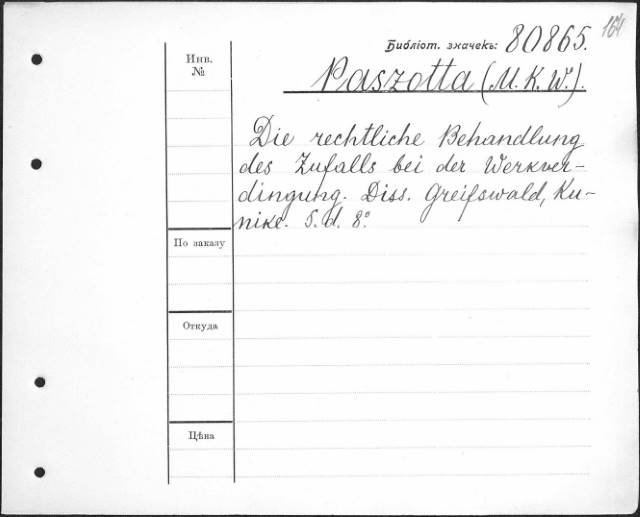 164
Библіот. значекъ: 80865.
Инв.
№
Paszotta (M. K. W.).
Die rechtliche Behandlung
des Zufalls bei der Werkver-
dingung. Diss. Greifswald, Ku-
nike. S. d. 8°
По заказу
Откуда
Цѣна